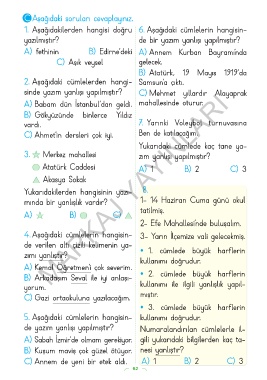 C Aşağıdaki soruları cevaplayınız.
1. Aşağıdakilerden hangisi doğru
yazılmıştır?
A) fethinin B) Edirne'deki
C) Aşık veysel
2. Aşağıdaki cümlelerden hangi-
sinde yazım yanlışı yapılmıştır?
A) Babam dün İstanbul'dan geldi.
B) Gökyüzünde binlerce Yıldız
vardı.
C) Ahmet'in dersleri çok iyi.
3. Merkez mahallesi
Atatürk Caddesi
Akasya Sokak
Yukarıdakilerden hangisinin yazı-
mında bir yanlışlık vardır?
A) B) C)
4. Aşağıdaki cümlelerin hangisin-
de verilen altı çizili kelimenin ya-
zımı yanlıştır?
A) Kemal Öğretmen'i çok severim.
B) Arkadaşım Seval ile iyi anlaşı-
yorum.
C) Gazi ortaokuluna yazılacağım.
5. Aşağıdaki cümlelerin hangisin-
de yazım yanlışı yapılmıştır?
A) Sabah İzmir'de olmam gerekiyor.
B) Kuşum maviş çok güzel ötüyor.
C) Annem de yeni bir etek aldı.
6. Aşağıdaki cümlelerin hangisin-
de bir yazım yanlışı yapılmıştır?
A) Annem Kurban Bayramında
gelecek.
B) Atatürk, 19 Mayıs 1919'da
Samsun'a çıktı.
C) Mehmet yıllardır Alayaprak
mahallesinde oturur.
7. Yarınki Voleybol turnuvasına
Ben de katılacağım.
Yukarıdaki cümlede kaç tane ya-
zım yanlışı yapılmıştır?
A) 1 B) 2 C) 3
8.
1- 14 Haziran Cuma günü okul
tatilmiş.
2- Efe Mahallesi'nde buluşalım.
3- Yarın İlçemize vali gelecekmiş.
• 1. cümlede büyük harflerin
kullanımı doğrudur.
• 2. cümlede büyük harflerin
kullanımı ile ilgili yanlışlık yapıl-
mıştır.
• 3. cümlede büyük harflerin
kullanımı doğrudur.
Numaralandırılan cümlelerle il-
gili yukarıdaki bilgilerden kaç ta-
nesi yanlıştır?
A) 1 B) 2 C) 3
82